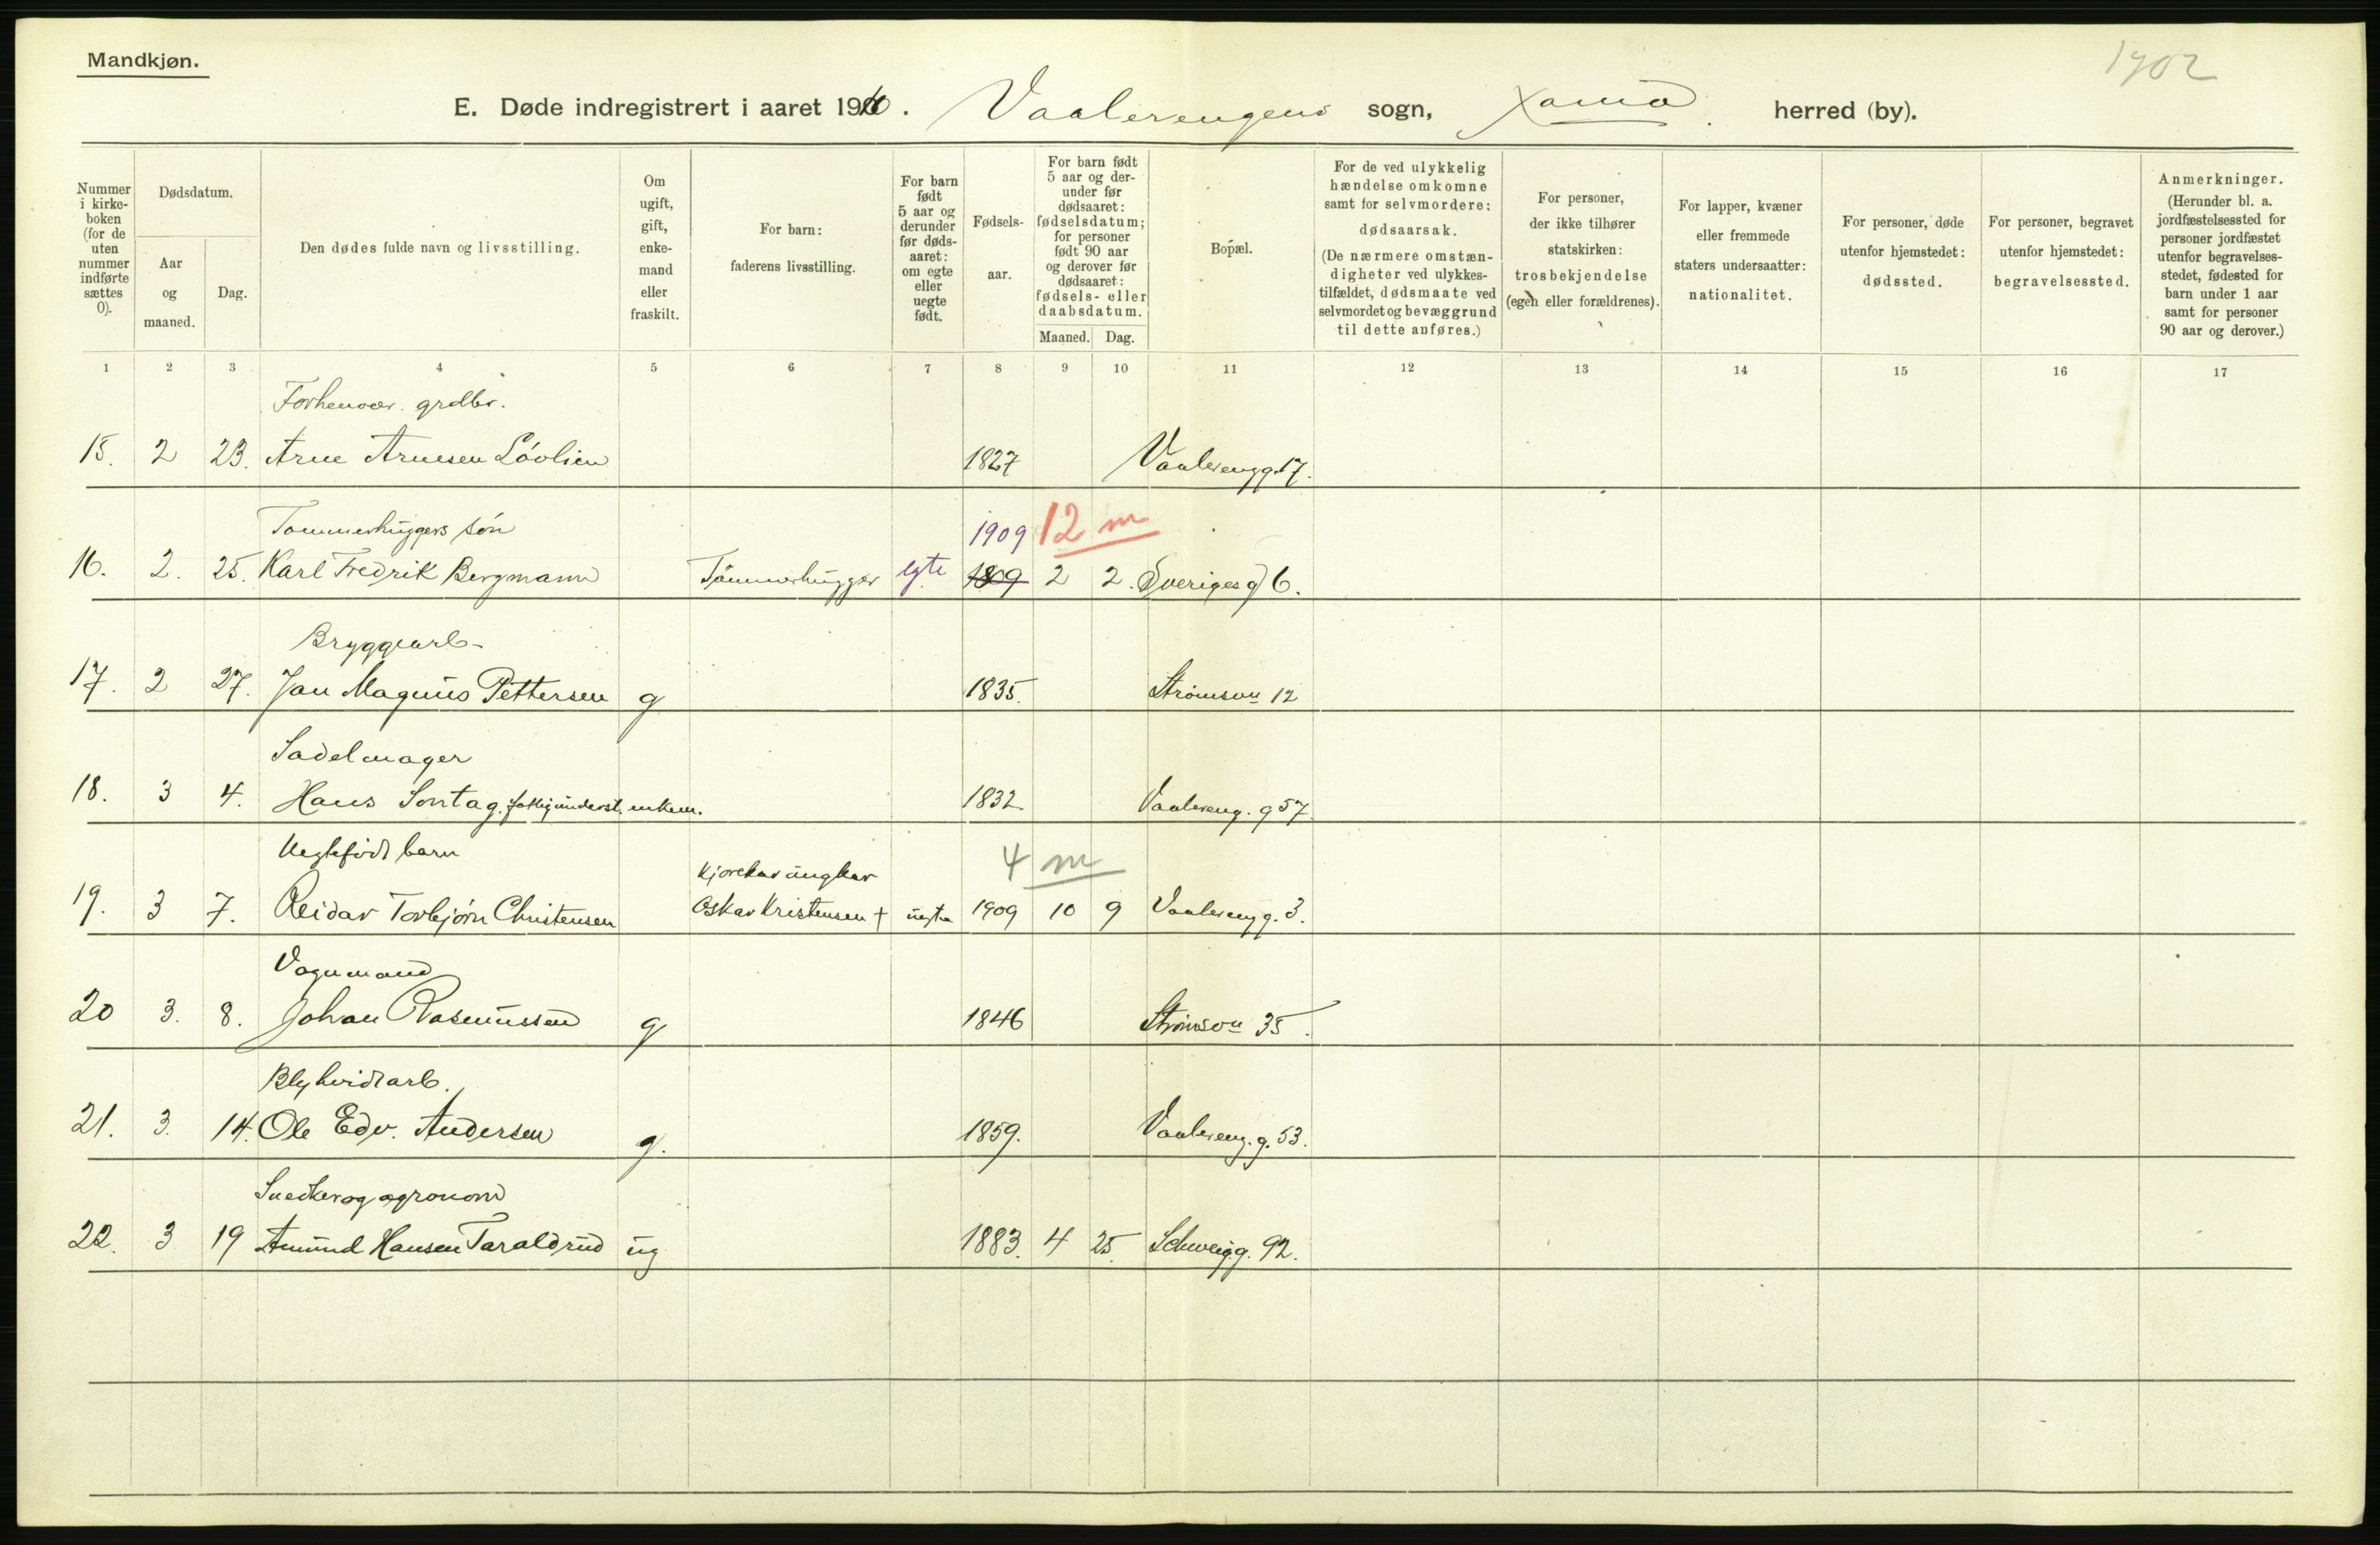 Mandkjøn.
1902
E. Døde indregistrert i aaret 1910. Vaalerengens sogn, Xania. herred (by).
Nummer i kirke-boken (for de uten nummer indførte sættes 0).
Dødsdatum.
Aar og maaned.
Dag.
Den dødes fulde navn og livsstilling.
Om ugift, gift, enke-mand eller fraskilt.
For barn: faderens livsstilling.
For barn født 5 aar og derunder før døds-aaret: om egte eller uegte født.
Fødsels-aar.
For barn født 5 aar og der-under før dødsaaret: fødselsdatum; for personer født 90 aar og derover før dødsaaret: fødsels- eller daabsdatum.
Maaned. Dag.
Bopæl.
For de ved ulykkelig hændelse omkomne samt for selvmordere: dødsaarsak. (De nærmere omstæn-digheter ved ulykkes-tilfældet, dødsmaate ved selvmordet og bevæggrund til dette anføres.)
For personer, der ikke tilhører statskirken: trosbekjendelse (egen eller forældrenes).
For lapper, kvæner eller fremmede staters undersaatter: nationalitet.
For personer, døde utenfor hjemstedet: dødssted.
For personer, begravet utenfor hjemstedet: begravelsessted.
Anmerkninger. (Herunder bl. a. jordfæstelsessted for personer jordfæstet utenfor begravelses-stedet, fødested for barn under 1 aar samt for personer 90 aar og derover.)
1 2 3 4 5 6 7 8 9 10 11 12 13 14 15 16 17
Forhenvær. grdbr.
15. 2 23. Arne Arnesen Lövlien 1827 Vaalerengg. 17.
Tømmerhuggers søn 1909 12 m
16. 2. 25. Karl Fredrik Bergmann Tömmerhugger egte 1809 2 2. Sverigesg 6.
Bryggearb-
17. 2 27. Jan Magnus Pettersen g 1835. Strömsvn 12
Sadelmager
18. 3 4. Hans Sontag. fattigunderst. enkem. 1832. Vaalereng. g 57
Uegtefödt barn Kjørekar ungkar 4 m
19. 3 7. Reidar Torbjörn Christensen Oskar Kristensen + uegte 1909 10 9 Vaalereng g. 3.
Vognmand
20 3. 8. Johan Rasmussen g 1846 Strömsvn 35.
Blyhvidtarb.
21. 3. 14. Ole Edv. Andersen g. 1859. Vaalereng. g. 53.
Snedker og agronom
22. 3 19 Amund Hansen Taraldrud ug 1883. 4 25. Schweigg. 92.